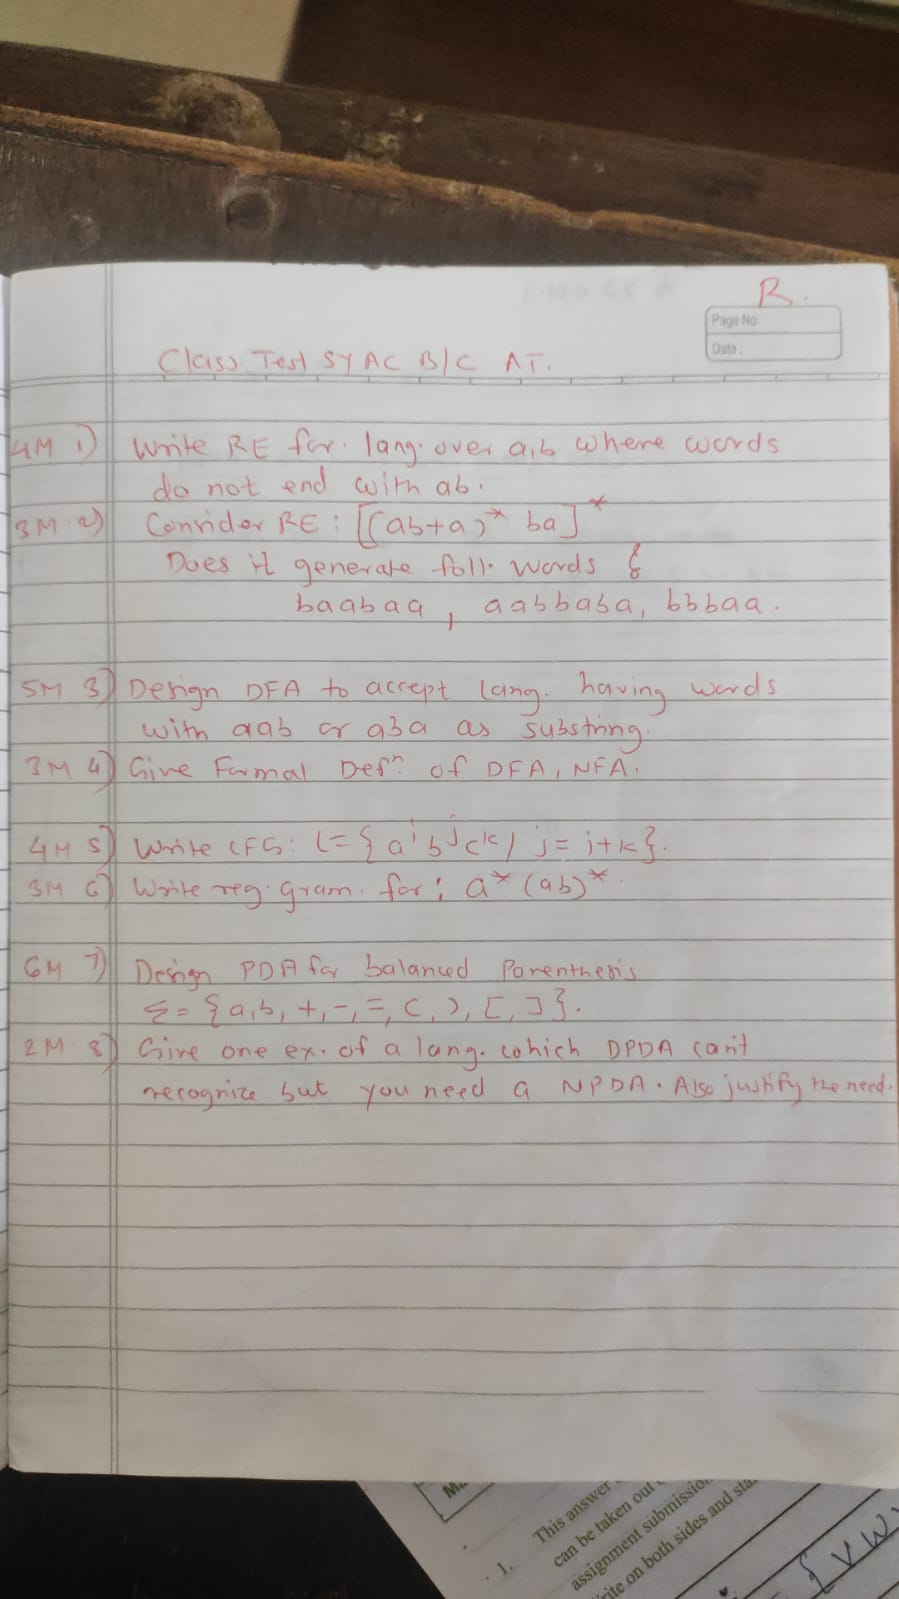 R.
Page No:
Date:
Class Test SY AC B/C AT.
4M 1) Write RE for. lang. over a,b where words
do not end with ab.
3M 2) Consider RE: [(ab+a)* ba]*
Does it generate foll. words
baabaa, aabbaba, bbbaa.
5M 3) Design DFA to accept lang. having words
with aab or aba as substring.
3M 4) Give Formal Defn of DFA, NFA.
4M 5) Write CFG: L={a^i b^j c^k / j=i+k}.
3M 6) Write reg. gram. for: a*(ab)*.
6M 7) Design PDA for balanced Parenthesis
Σ={a,b,+,-,=,(,),[,]}.
2M 8) Give one ex. of a lang. which DPDA can't
recognize but you need a NPDA. Also justify the need.
1. This answer
can be taken out
assignment submission
on both sides and